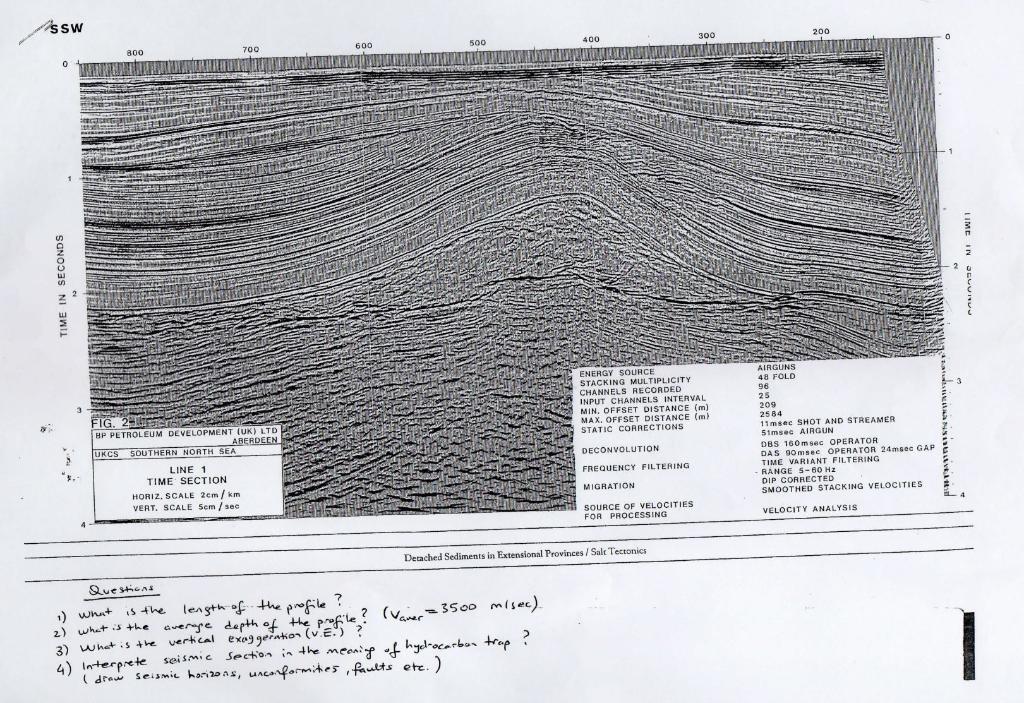 SSW
800 700 600 500 400 300 200 0
0
1
1
TIME IN SECONDS
TIME IN SECONDS
2
2
3
3
4
4
FIG. 2
BP PETROLEUM DEVELOPMENT (UK) LTD
ABERDEEN
UKCS SOUTHERN NORTH SEA
LINE 1
TIME SECTION
HORIZ. SCALE 2cm / km
VERT. SCALE 5cm / sec
ENERGY SOURCE AIRGUNS
STACKING MULTIPLICITY 48 FOLD
CHANNELS RECORDED 96
INPUT CHANNELS INTERVAL 25
MIN. OFFSET DISTANCE (m) 209
MAX. OFFSET DISTANCE (m) 2584
STATIC CORRECTIONS 11msec SHOT AND STREAMER
51msec AIRGUN
DECONVOLUTION DBS 160msec OPERATOR
DAS 90msec OPERATOR 24msec GAP
FREQUENCY FILTERING TIME VARIANT FILTERING
- RANGE 5-60 Hz
MIGRATION DIP CORRECTED
SMOOTHED STACKING VELOCITIES
SOURCE OF VELOCITIES VELOCITY ANALYSIS
FOR PROCESSING
Detached Sediments in Extensional Provinces / Salt Tectonics
Questions
1) What is the length of the profile ?
2) what is the average depth of the profile ? (Vaver = 3500 m/sec)
3) What is the vertical exaggeration (V.E.) ?
4) Interprete seismic section in the meaning of hydrocarbon trap ?
( draw seismic horizons, unconformities, faults etc. )